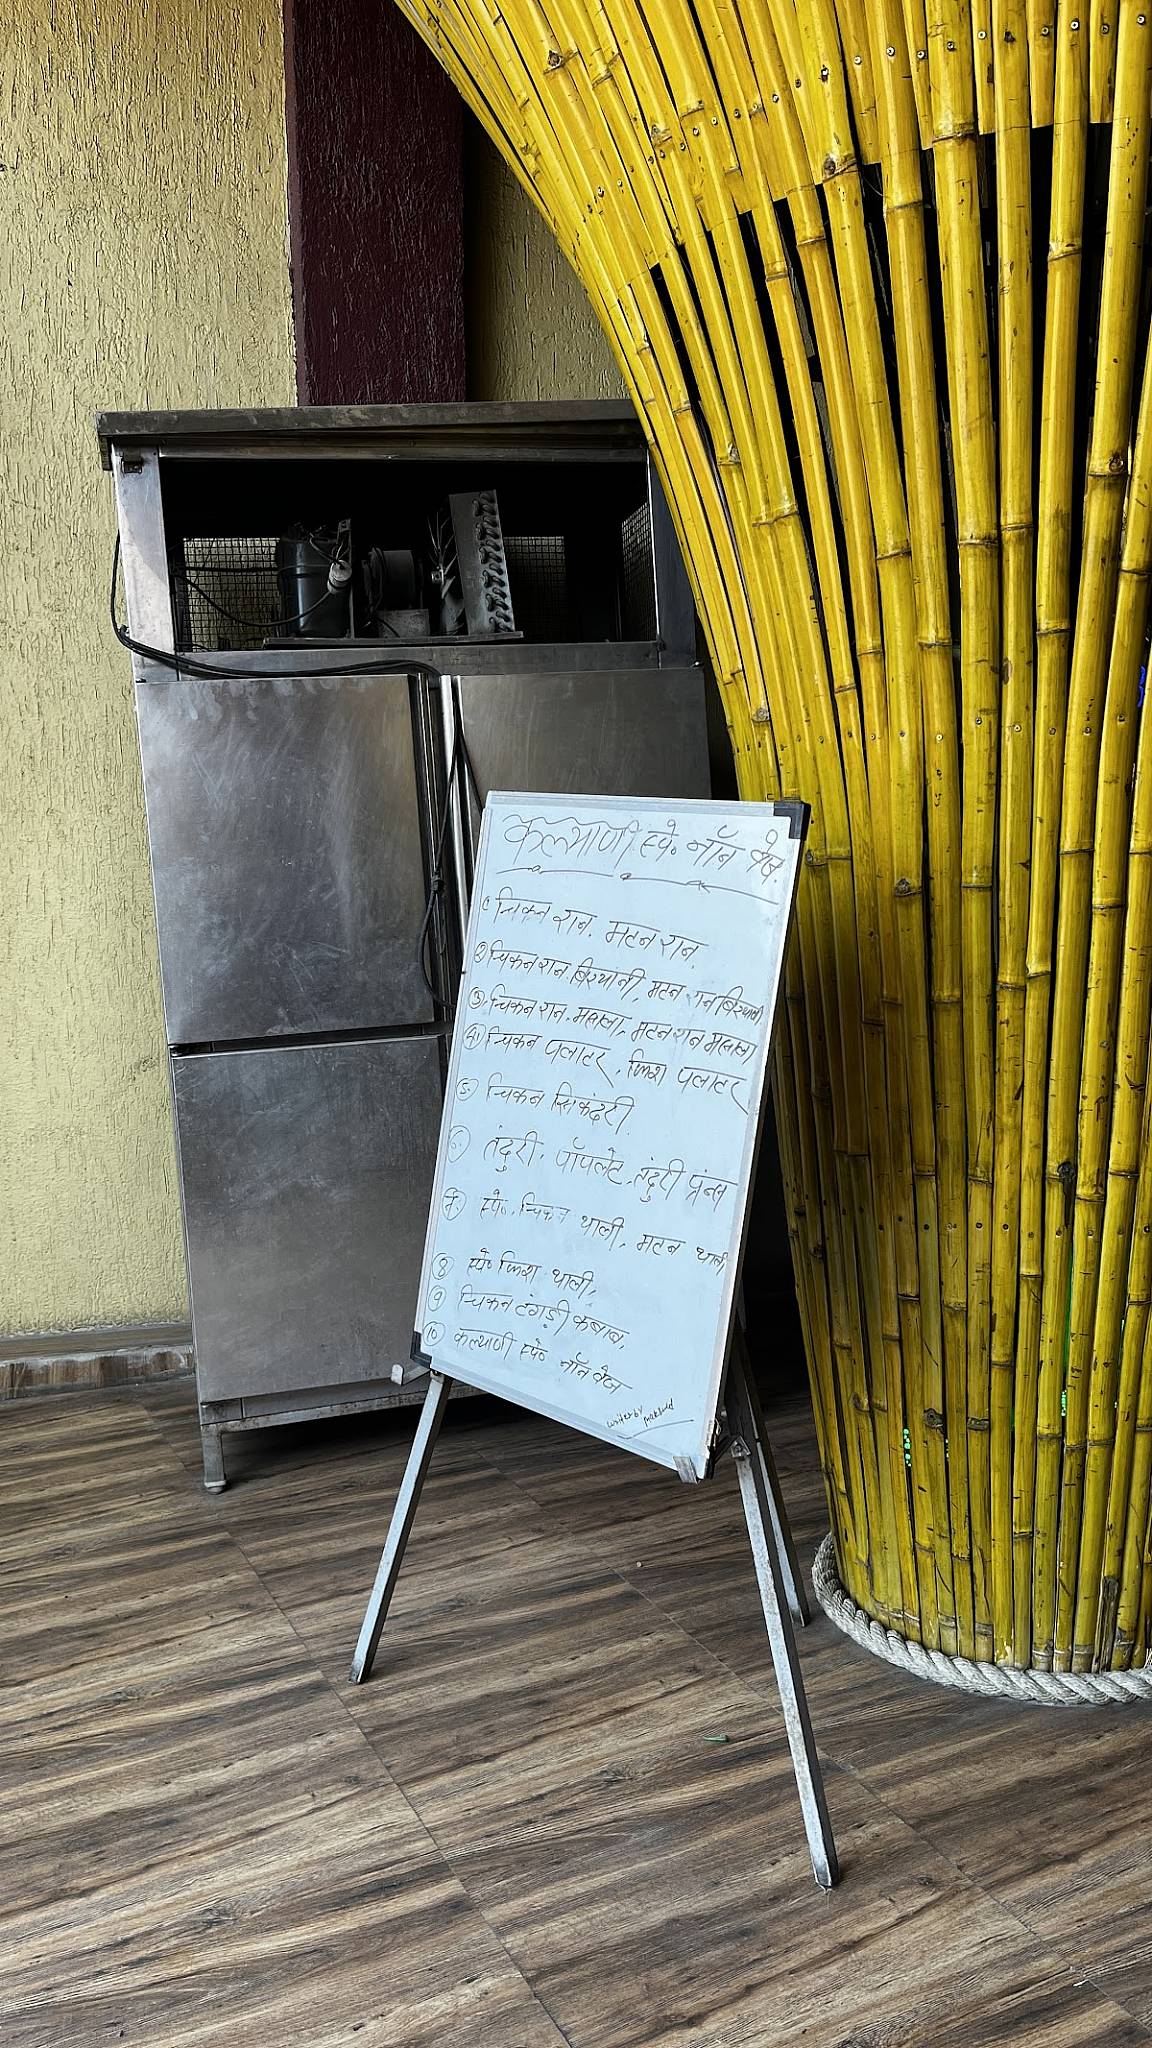 कल्याणी स्पे० नॉन वेज
१ चिकन रान. मटन रान.
२ चिकन रान बिरयानी, मटन रान बिरयानी
३) चिकन रान. मसाला, मटन रान मसाला
४) चिकन पलाटर, फिश पलाटर
५. चिकन सिकंदरी.
६. तंदुरी. पॉपलेट, तंदुरी प्रॅन्स
७. स्पे०. चिकन थाली, मटन थाली,
8 स्पे० फिश थाली,
9 चिकन टंगड़ी कबाब,
10 कल्याणी स्पे० नॉन वेज
writer by